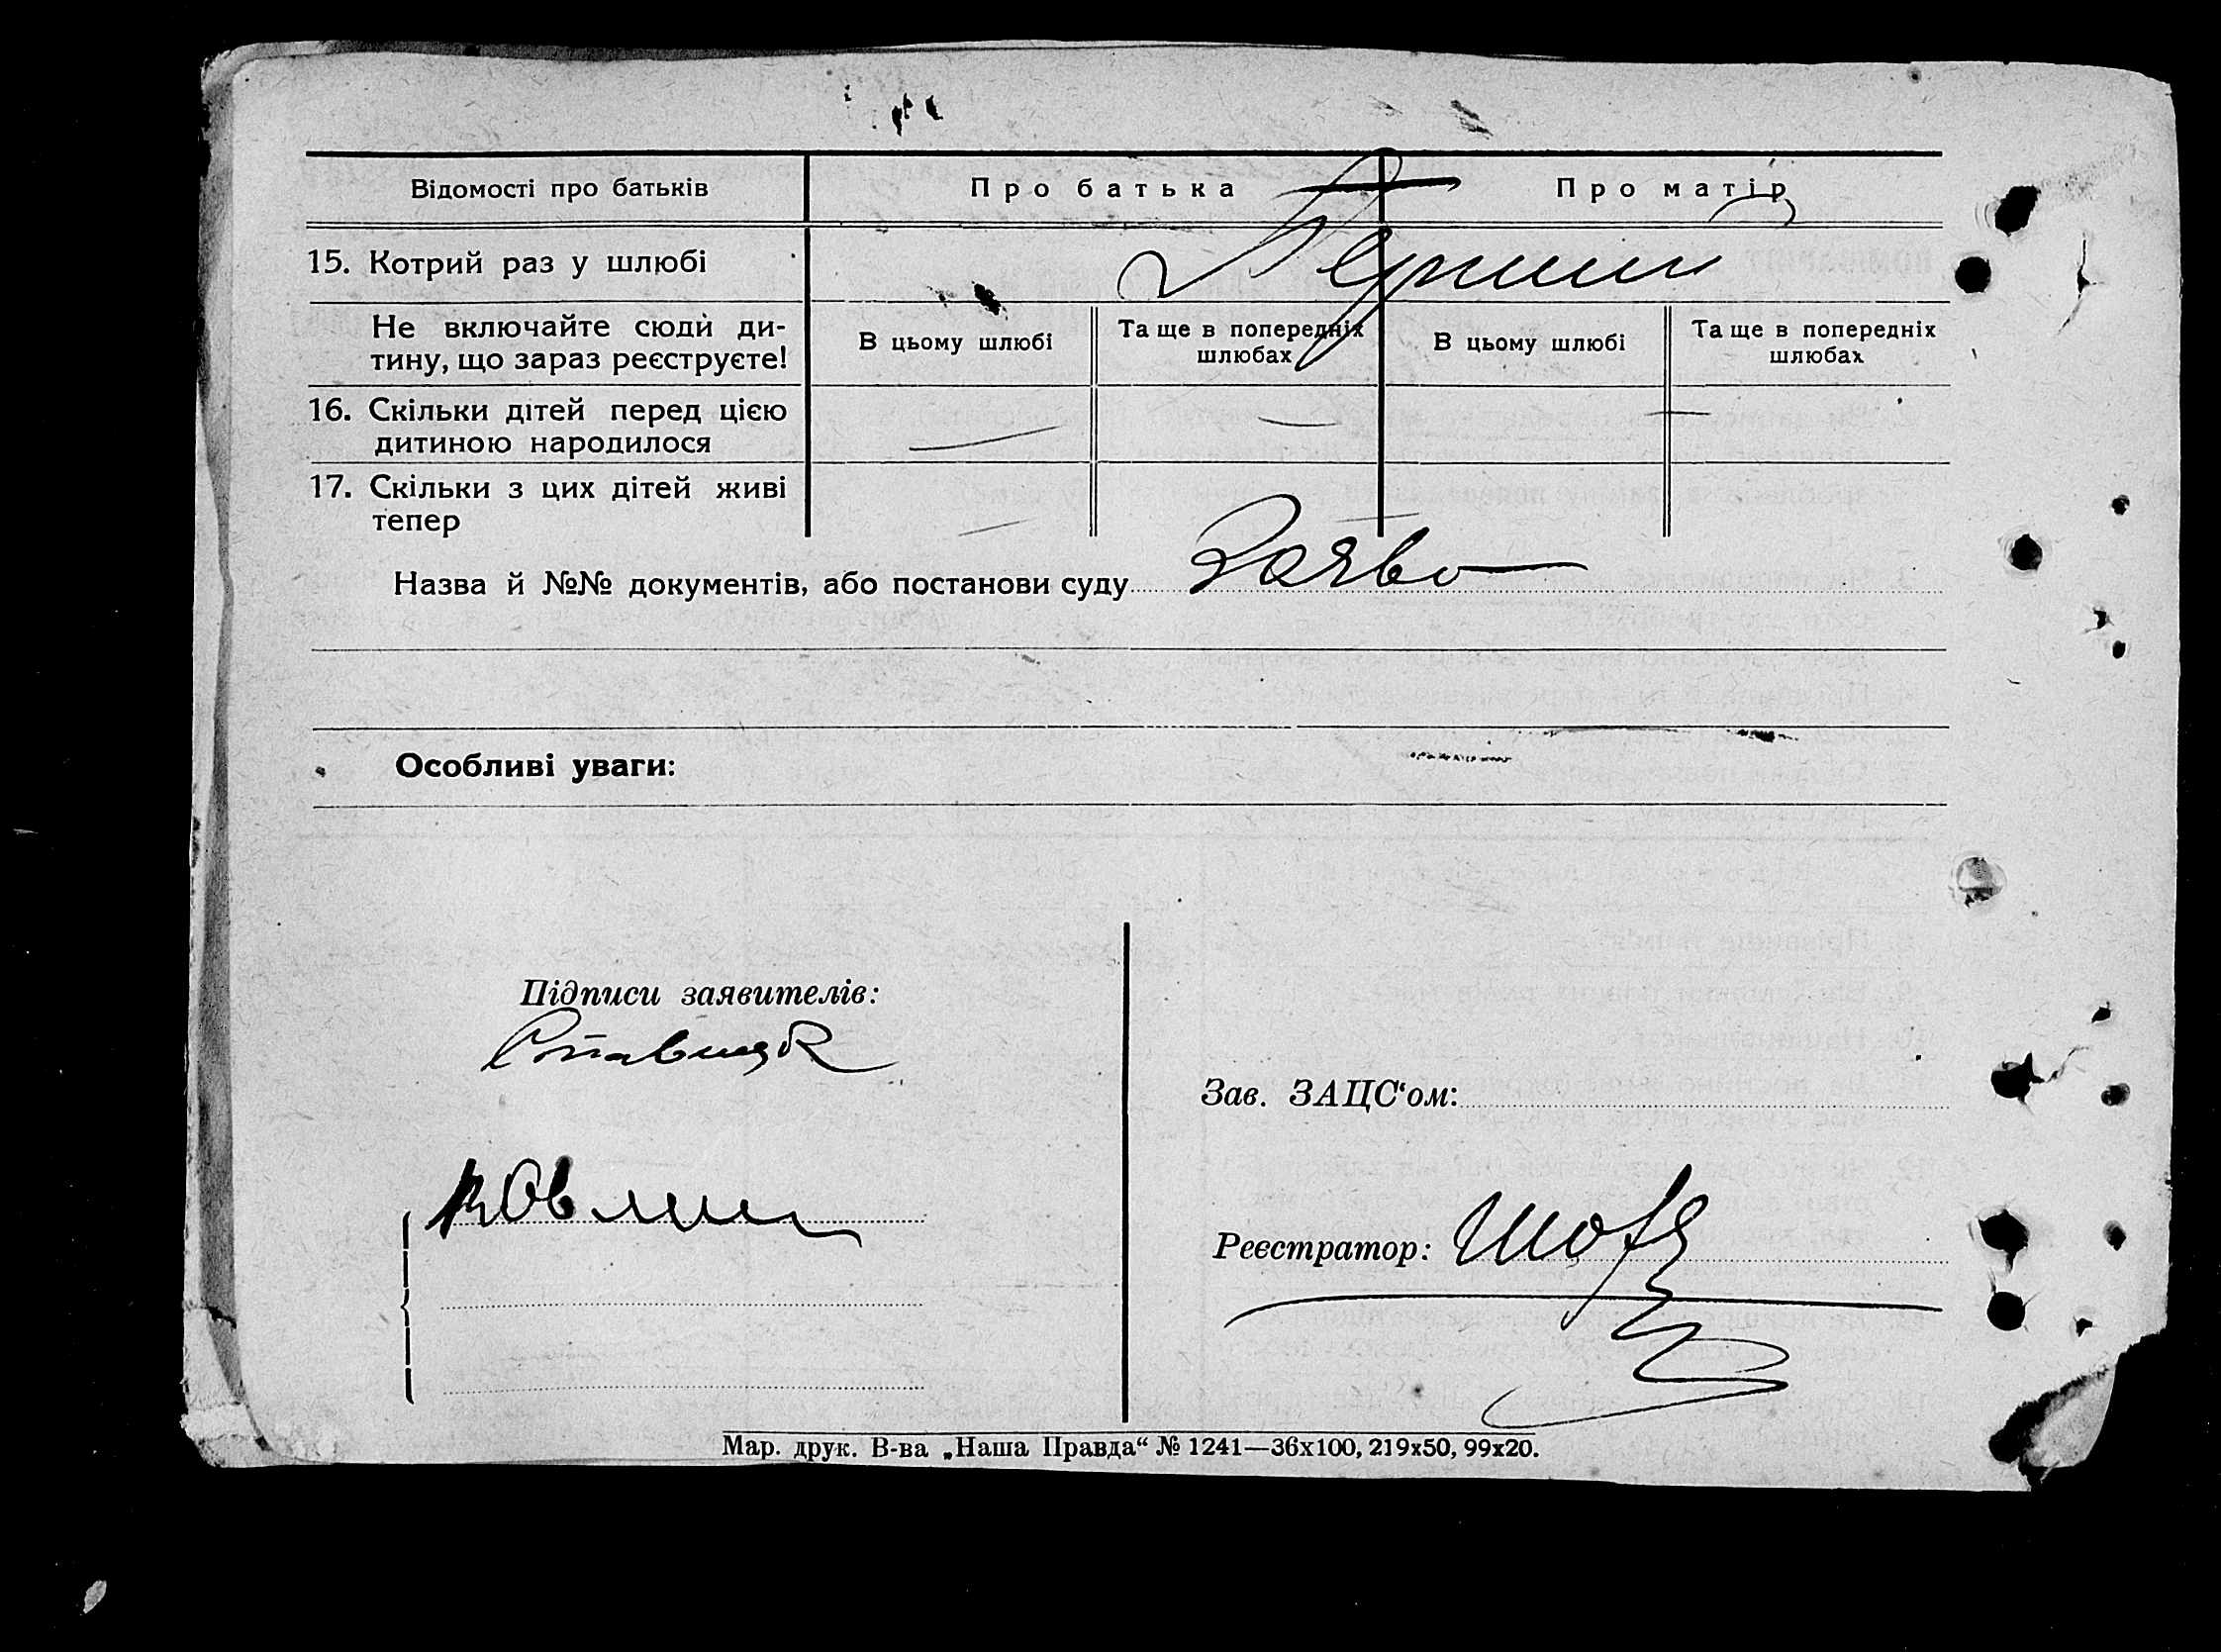 Відомості про батьків
Про батька
Про матір
15. Котрий раз у шлюбі
Перший
Не включайте сюди ди-
тину, що зараз реєструєте!
В цьому шлюбі
Та ще в попередніх
шлюбах
В цьому шлюбі
Та ще в попередніх
шлюбах
16. Скільки дітей перед цією
дитиною народилося
— — —
17. Скільки з цих дітей живі
тепер
— —
Назва й №№ документів, або постанови суду
Особливі уваги:
Підписи заявителів:
Зав. ЗАЦС‘ом:
Реєстратор:
Мар. друк. В-ва „Наша Правда“ № 1241—36х100, 219х50, 99х20.